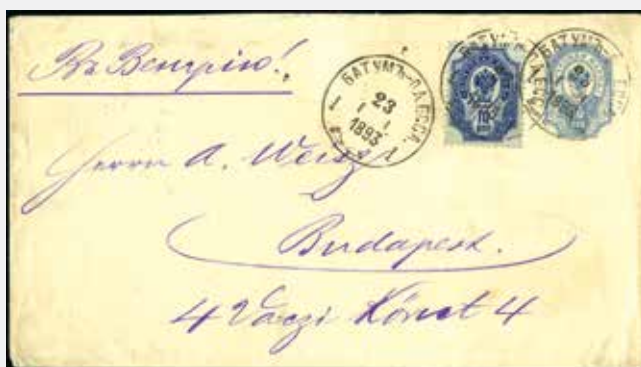 Въ Венгрію!
БАТУМЪ-ОДЕССА.
23
1
1893
БАТУМЪ-
10
БАТУМЪ-
Herrn A. Weisz
Budapest.
4 Váczi Körut 4